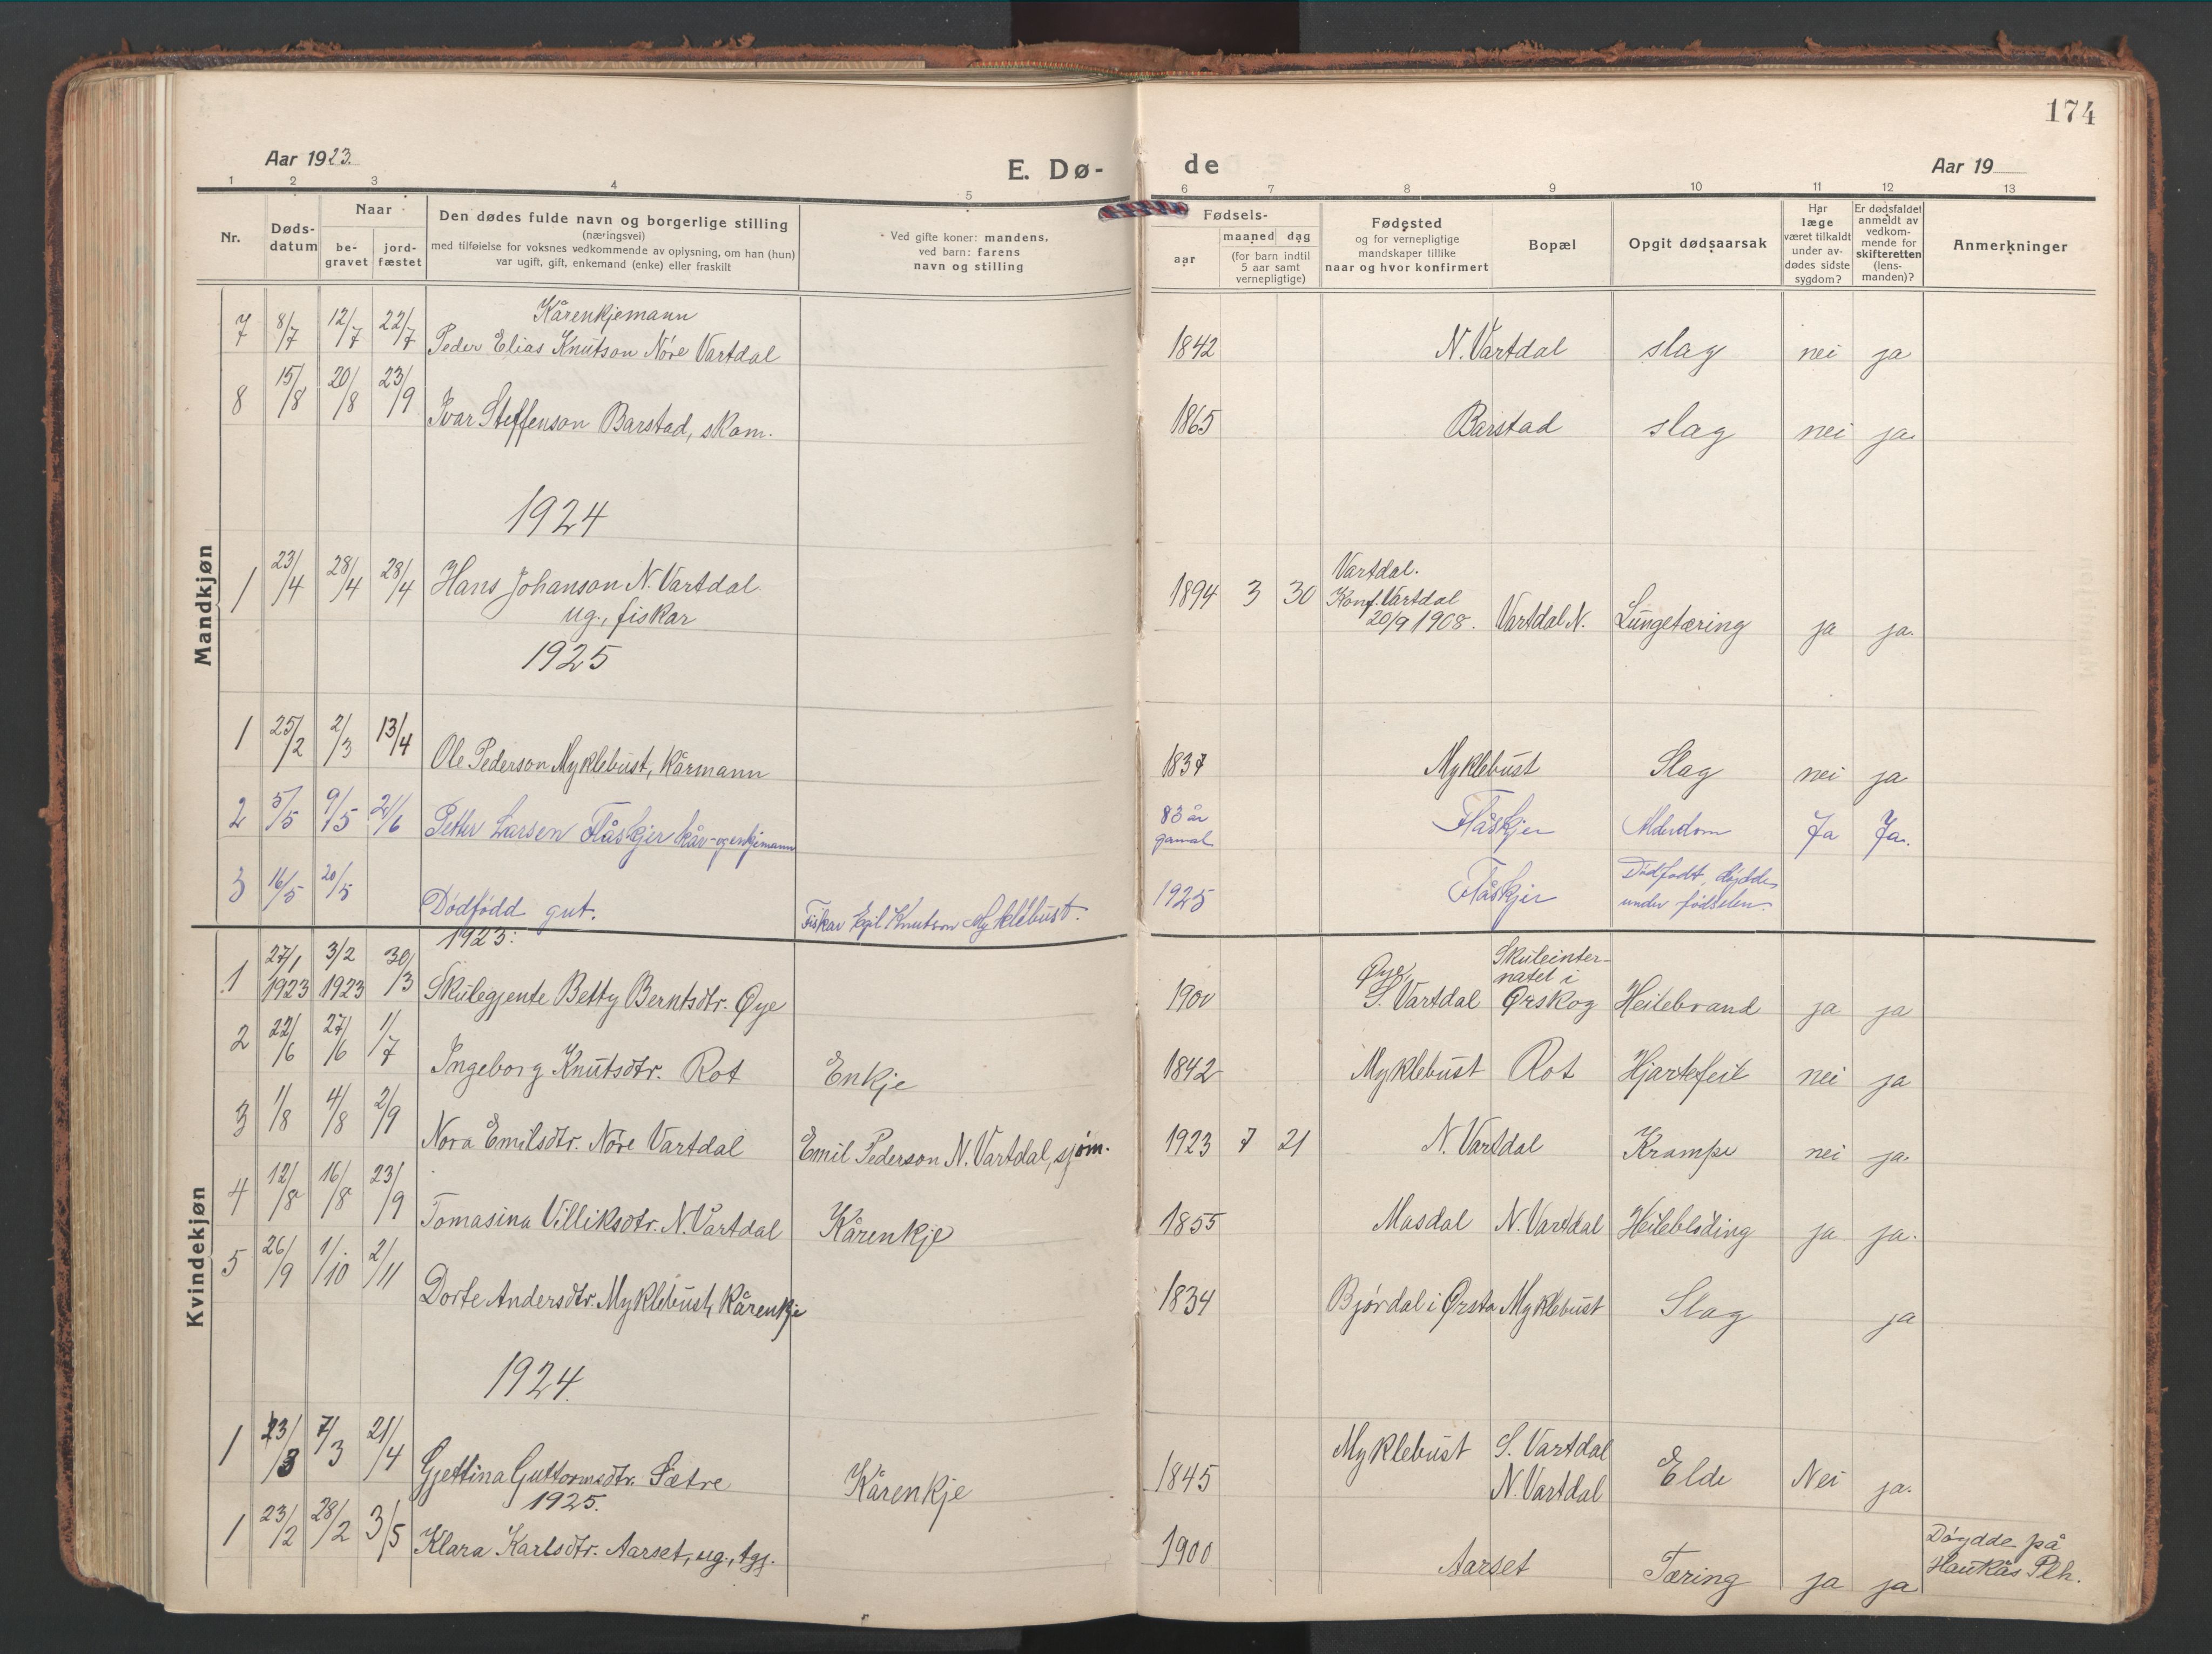 174
Aar 1923.
E. Dø-
de
Aar 19
1 2 3 4 5 6 7 8 9 10 11 12 13
Nr.
Døds-
datum
Naar
be-
gravet
jord-
fæstet
Den dødes fulde navn og borgerlige stilling
(næringsvei)
med tilføielse for voksnes vedkommende av oplysning, om han (hun)
var ugift, gift, enkemand (enke) eller fraskilt
Ved gifte koner: mandens,
ved barn: farens
navn og stilling
Fødsels-
aar
maaned dag
(for barn indtil
5 aar samt
vernepligtige)
Fødested
og for vernepligtige
mandskaper tillike
naar og hvor konfirmert
Bopæl
Opgit dødsaarsak
Har
læge
været tilkaldt
under av-
dødes sidste
sygdom?
Er dødsfaldet
anmeldt av
vedkom-
mende for
skifteretten
(lens-
manden)?
Anmerkninger
Mandkjøn
Kårenkjemann
7 8/7 12/7 22/7 Peder Elias Knutson Nöre Vartdal 1842 N. Vartdal slag nei ja
8 15/8 20/8 23/9 Ivar Steffenson Barstad, skom. 1865 Barstad slag nei ja.
1924
Vartdal.
1 23/4 28/4 28/4 Hans Johanson N. Vartdal 1894 3 30 Konf. Vartdal
ug., fiskar 20/9 1908. Vartdal N. Lungetæring ja ja.
1925
1 25/2 2/3 13/4 Ole Pederson Myklebust, kårmann 1837 Myklebust Slag nei ja
2 5/5 9/5 21/6 Petter Larsen Flåskjer kår-og enkjemann 83 år Flåskjer Alderdom Ja Ja.
gamal
3 16/5 20/5 Dödfödd gut. Fiskar Egil Knutson Myklebust. 1925 Flåskjer Dödfödt, döydde
under födselen
Kvindekjøn
1923:
1 27/1 1923 3/2 1923 30/3 Skulegjente Betty Berntsdtr. Øye 1900 Øye, S. Vartdal Skuleinter-
natet i
Ørskog Heilebrand ja ja
2 22/6 27/6 1/7 Ingeborg Knutsdtr. Rot Enkje 1842 Myklebust Rot Hjartefeil nei ja
3 1/8 4/8 2/9 Nora Emilsdtr. Nöre Vartdal Emil Pederson N. Vartdal, sjöm. 1923 7 21 N. Vartdal Krampe nei ja.
4 12/8 16/8 23/9 Tomasina Villiksdtr. N. Vartdal Kårenkje 1855 Masdal N. Vartdal Heileblöding ja ja.
5 26/9 1/10 2/11 Dorte Andersdtr. Myklebust, Kårenkje 1834 Bjørdal i Ørsta Myklebust Slag ja
1924.
1 23/3 7/3 21/4 Gjettina Guttormsdtr. Sætre Kårenkje 1845 Myklebust S. Vartdal
N. Vartdal Elde Nei ja.
1925.
1 23/2 28/2 3/5 Klara Karlsdtr. Aarset, ug., tgj. 1900 Aarset Tæring ja ja Döydde på
Haukås Plh.